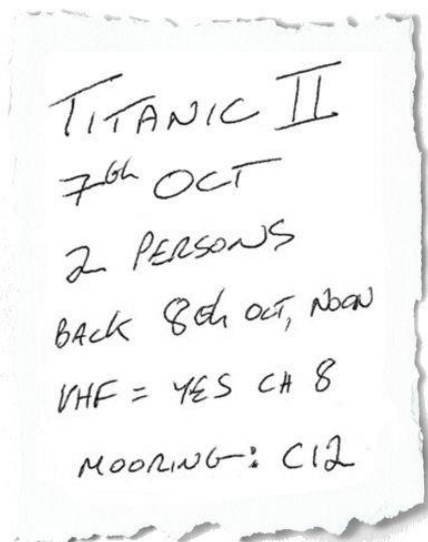 TITANIC II
7th OCT
2 PERSONS
BACK 8th OCT, NOON
VHF = YES CH 8
MOORING: C12